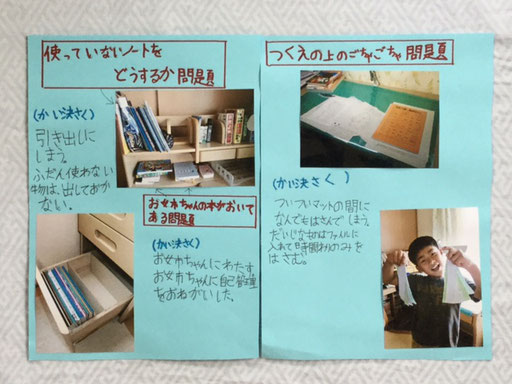 使っていないノートを
どうするか問題
(かい決さく)
引き出しに
しまう。
ふだん使わない
物は、出しておか
ない。
お姉ちゃんの本がおいて
ある問題
(かい決さく)
お姉ちゃんにわたす
お姉ちゃんに自己管理
をおねがいした。
つくえの上のごちゃごちゃ問題
(かい決さく)
ついついマットの間に
なんでもはさんでしまう。
だいじなものはファイルに
入れて時間わりのみを
はさむ。